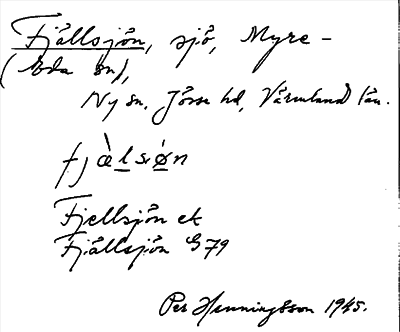 Fjällsjön, sjö, Myre -
(Eda sn),
Ny sn. Jösse hd, Värmland län.
fjæ̀lsøn
Fjellsjön ek
Fjällsjön G79
Per Henningsson 1945.